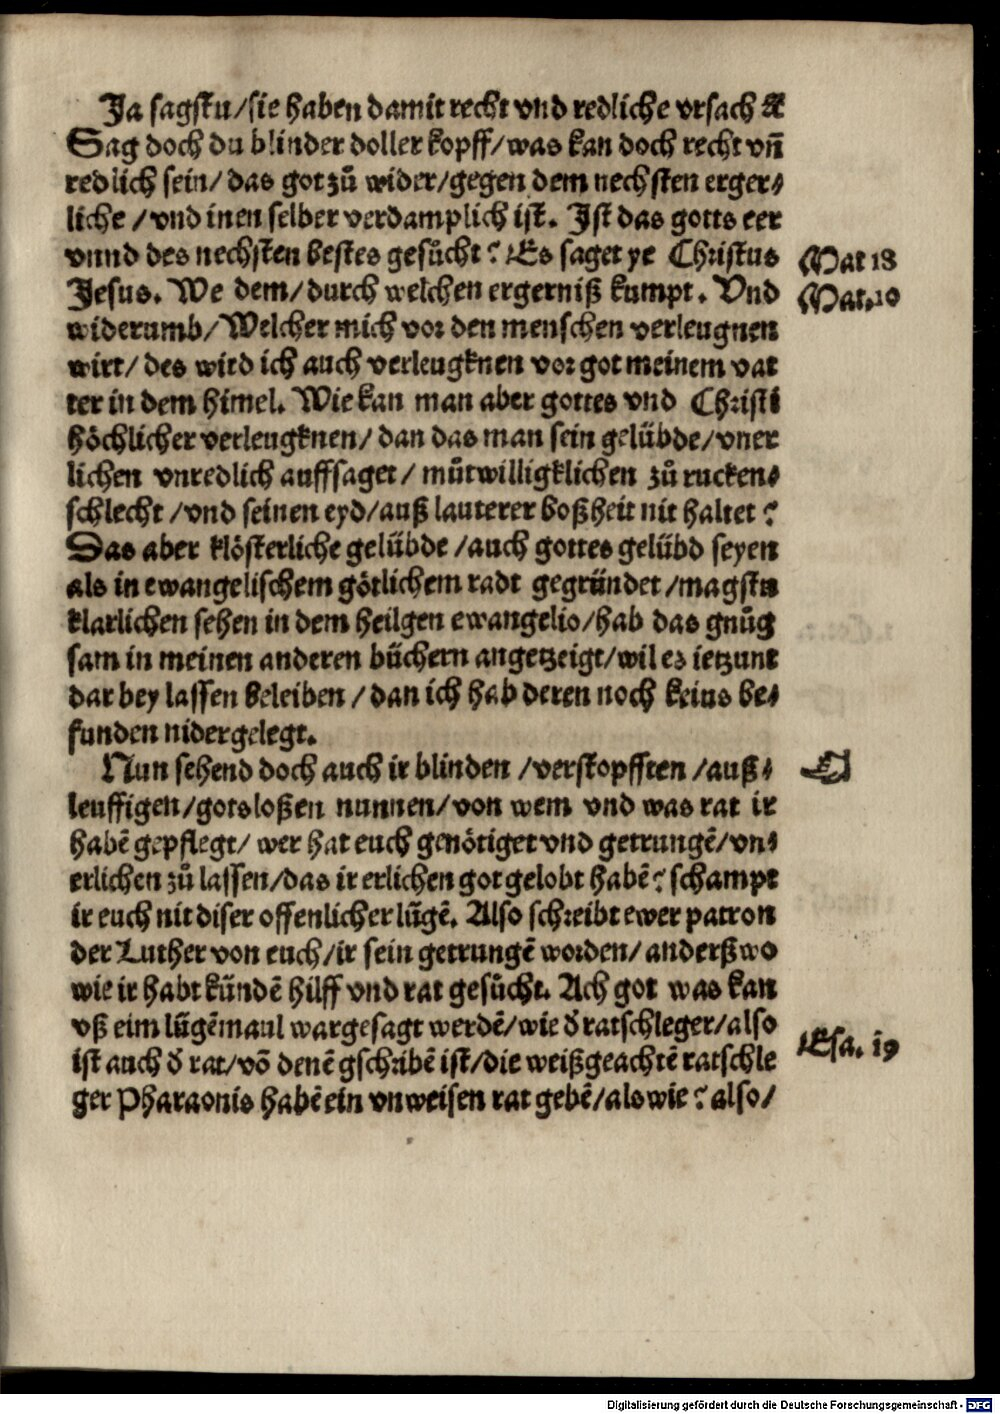 Ja sagstu/sie haben damit recht vnd redliche vrsach ꝛc
Sag doch du blinder doller kopff/was kan doch recht vñ
redlich sein/das got zů wider/gegen dem nechsten erger⸗
liche/vnd inen selber verdamplich ist. Ist das gotts eer
vnnd des nechsten bestes gesůcht? Es saget ye Christus
Jesus. We dem/durch welchen ergerniß kumpt. Vnd
widerumb/Welcher mich vor den menschen verleugnen
wirt/des wird ich auch verleugknen vor got meinem vat
ter in dem himel. Wie kan man aber gottes vnd Christi
höchlicher verleugknen/dan das man sein gelübde/vner
lichen vnredlich auffsaget/můtwilligklichen zů rucken⸗
schlecht/vnd seinen eyd/auß lauterer boßheit nit haltet?
Das aber klösterliche gelübde/auch gottes gelübd seyen
als in ewangelischem götlichem radt gegründet/magstu
klarlichen sehen in dem heilgen ewangelio/hab das gnůg
sam in meinen anderen büchern angetzeigt/wil es ietzunt
dar bey lassen beleiben/dan ich hab deren noch keins be⸗
funden nidergelegt.
Nun sehend doch auch ir blinden/verstopfften/auß⸗
leuffigen/gotsloßen nunnen/von wem vnd was rat ir
habē gepflegt/wer hat euch genötiget vnd getrungē/vn⸗
erlichen zů lassen/das ir erlichen got gelobt habē? schampt
ir euch nit diser offenlicher lügē. Also schreibt ewer patron
der Luther von euch/ir sein getrungē worden/anderßwo
wie ir habt kündē hilff vnd rat gesůcht. Ach got was kan
vß eim lügēmaul wargesagt werdē/wie d̕ ratschleger/also
ist auch d̕ rat/vō denē gschribē ist/die weißgeachtē ratschle
ger Pharaonis habē ein vnweisen rat gebē/als wie? also/
Mat 18
Mat. 10
Esa. 19
Digitalisierung gefördert durch die Deutsche Forschungsgemeinschaft - DFG